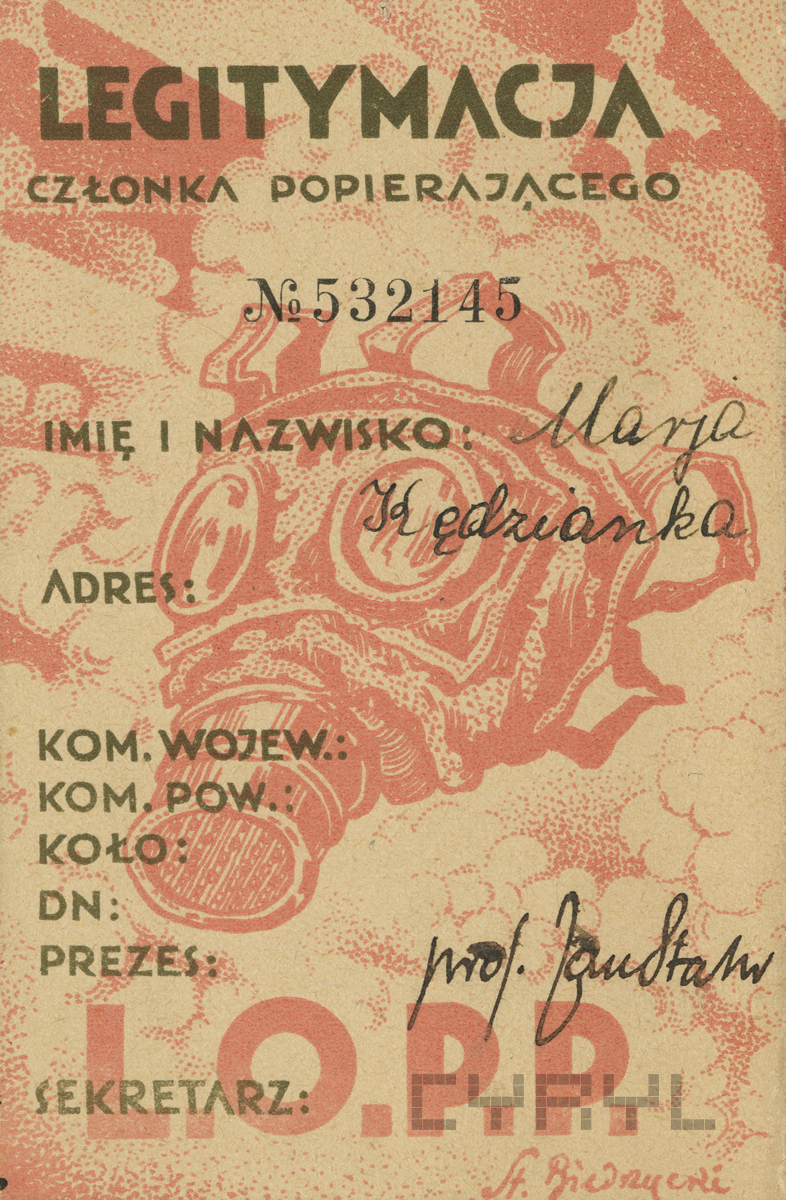 LEGITYMACJA
CZŁONKA POPIERAJĄCEGO
№532145
IMIĘ I NAZWISKO: Marja
Kędzianka
ADRES:
KOM. WOJEW.:
KOM. POW.:
KOŁO:
DN:
PREZES: prof. Jan
L.O.P.P.
SEKRETARZ:
CYRYL
St. Biedrzycki